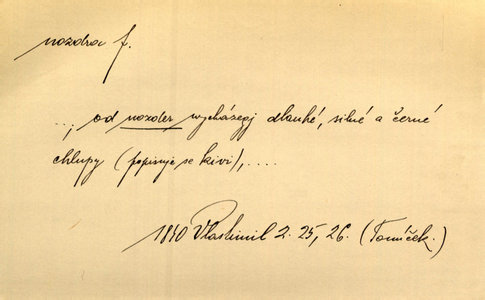 nozdra f.
..., od nozder wycházegj dlauhé, silné a černé
chlupy (popisuje se kivi), ....
1840 Vlastimil 2. 25, 26. (Tomíček.)